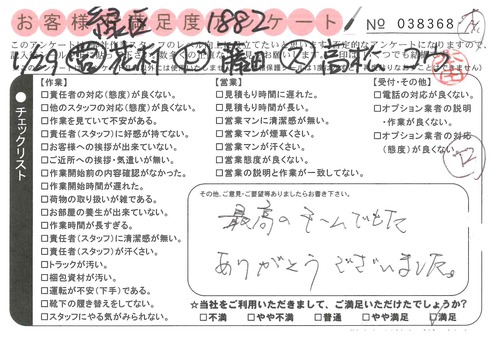 お客様満足度アンケート
緑区 1882
No 038368
【作業】
□責任者の対応(態度)が良くない。
□他のスタッフの対応(態度)が良くない。
□作業を見ていて不安がある。
□責任者(スタッフ)に好感が持てない。
□お客様への挨拶が出来ていない。
□ご近所への挨拶・気遣いが無い。
□作業開始前の内容確認がなかった。
□作業開始時間が遅れた。
□荷物の取り扱いが雑である。
□お部屋の養生が出来ていない。
□作業時間が長すぎる。
□責任者(スタッフ)に清潔感が無い。
□責任者(スタッフ)が汗くさい。
□トラックが汚い。
□梱包資材が汚い。
□運転が不安(下手)である。
□靴下の履き替えをしてない。
□スタッフにやる気がみられない。
チェックリスト
【営業】
□見積もり時間に遅れた。
□見積もり時間が長い。
□営業マンに清潔感が無い。
□営業マンが煙草くさい。
□営業マンが汗くさい。
□営業態度が良くない。
□営業の説明と作業が一致してない。
【受付・その他】
□電話の対応が良くない。
□オプション業者の説明
・作業が良くない。
□オプション業者の対応
(態度)が良くない。
その他、ご意見・ご要望等ありましたらお書き下さい。
最高のチームでした
ありがとうございました。
☆当社をご利用いただきまして、ご満足いただけたでしょうか?
□不満 □やや不満 □普通 □やや満足 □満足